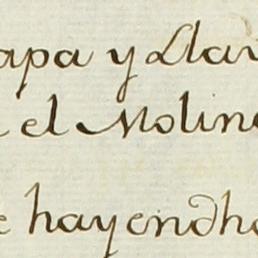 apa y Llav
el Molino
hay en dho